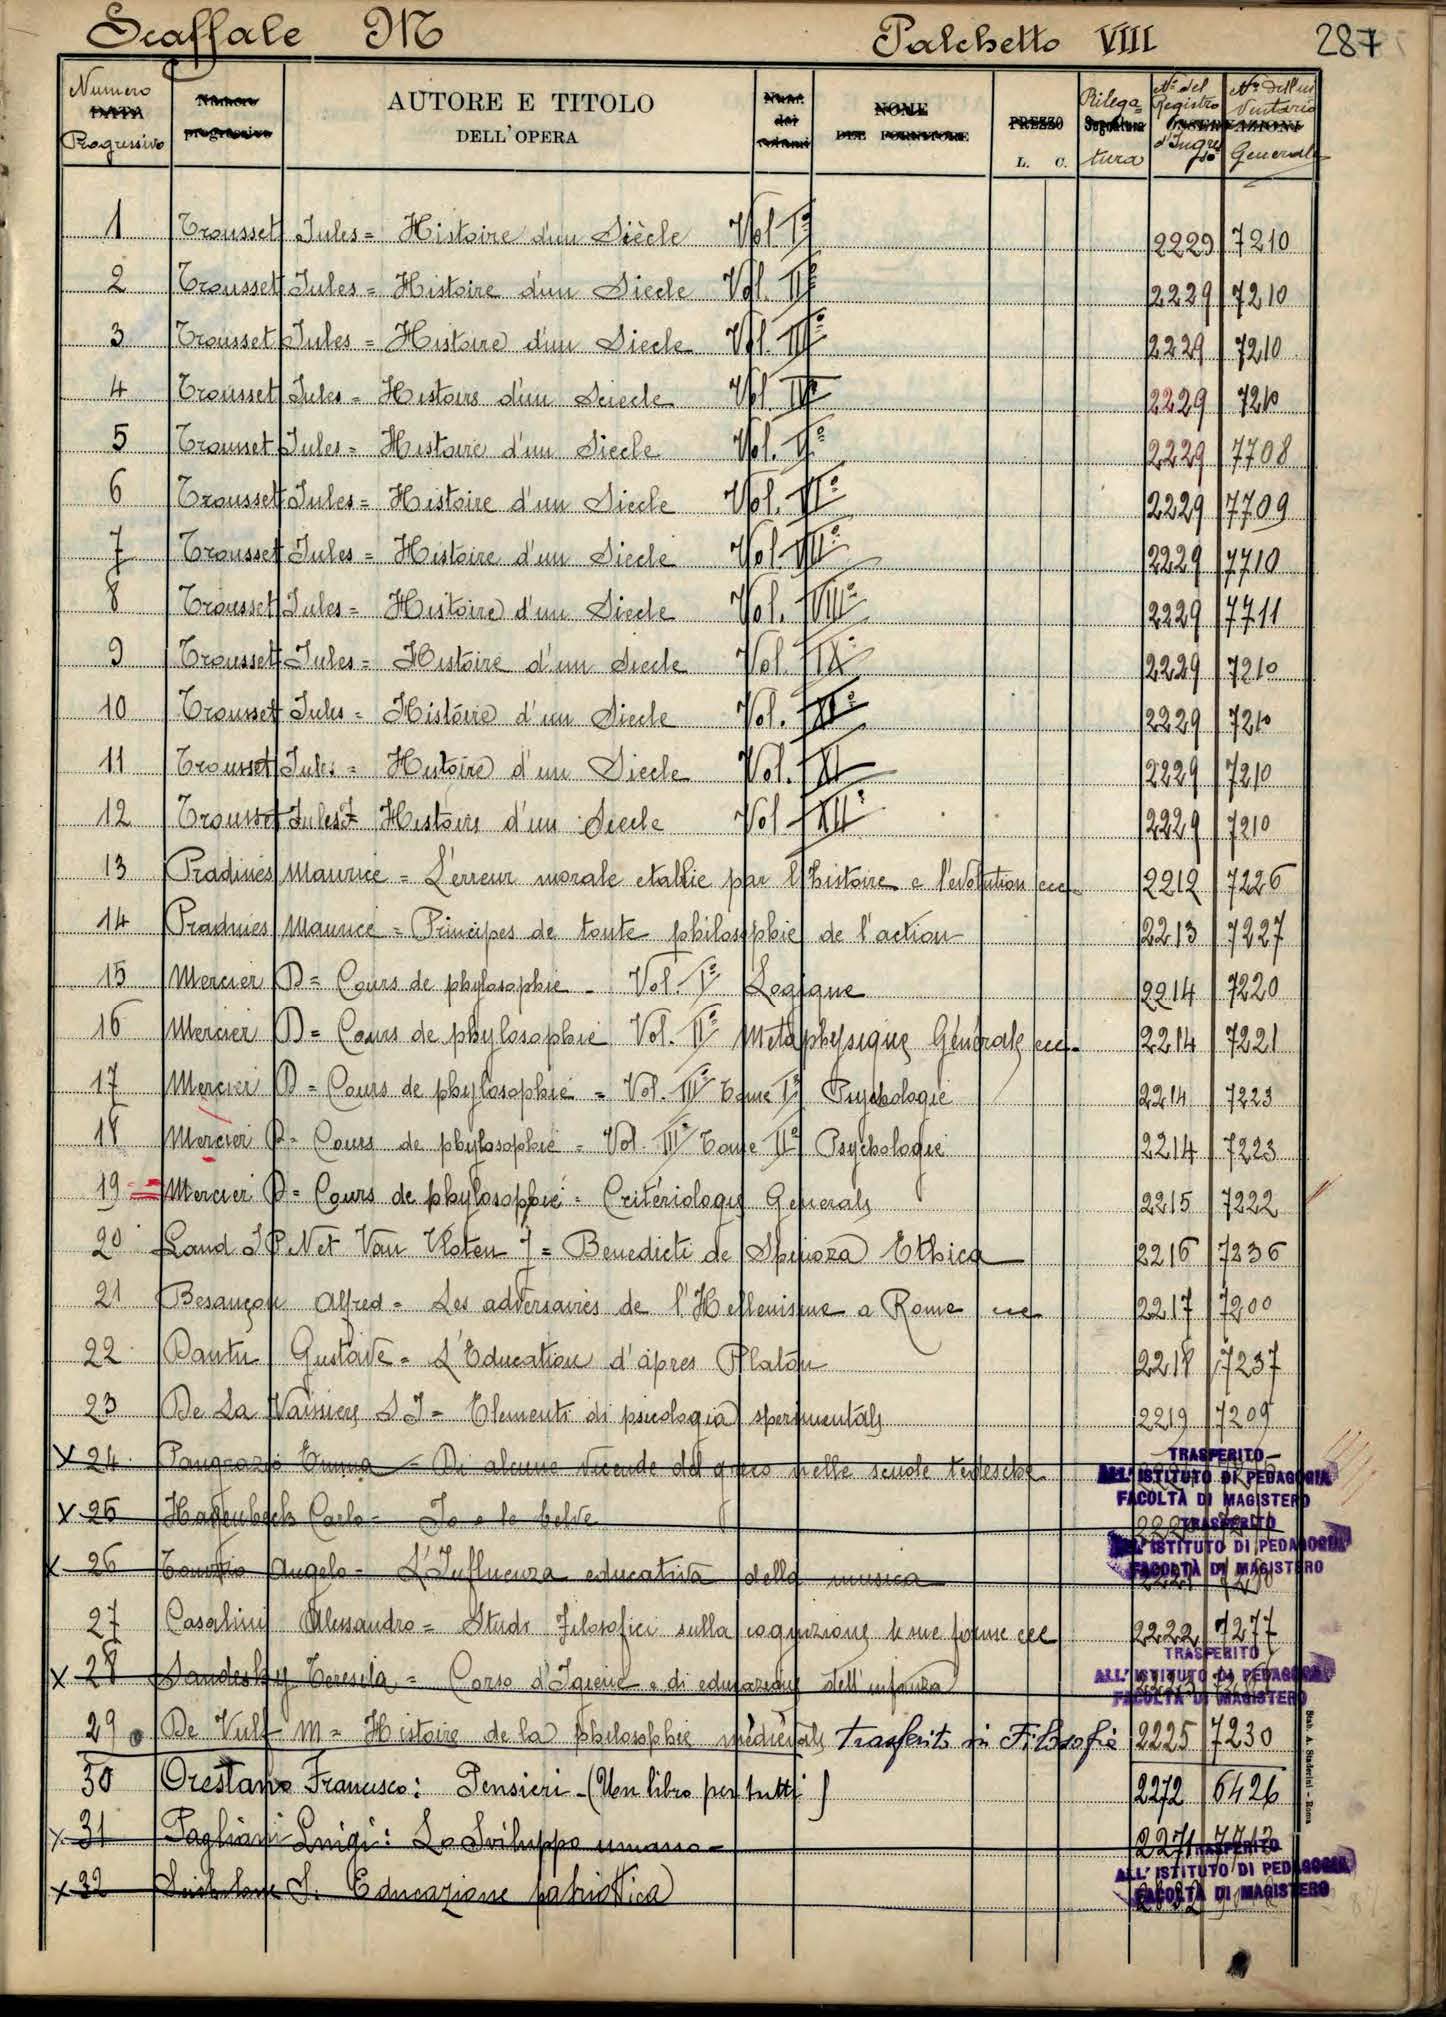 Scaffale M Palchetto VIII 287
Numero Progressivo AUTORE E TITOLO DELL'OPERA NOME PREZZO L. C. Rilegatura Nº del Registro d'Ingresso Nº dell'inventario Generale
1 Trousset Jules = Histoire d'un Siècle Vol. Iº 2229 7210
2 Trousset Jules = Histoire d'un Siecle Vol. IIº 2229 7210
3 Trousset Jules = Histoire d'un Siecle Vol. IIIº 2229 7210
4 Trousset Jules = Histoire d'un Sciecle Vol. IVº 2229 7210
5 Trousset Jules = Histoire d'un Siecle Vol. Vº 2229 7708
6 Trousset Jules = Histoire d'un Siecle Vol. VIº 2229 7709
7 Trousset Jules = Histoire d'un Siecle Vol. VIIº 2229 7710
8 Trousset Jules = Histoire d'un Siecle Vol. VIIIº 2229 7711
9 Trousset Jules = Histoire d'un Siecle Vol. IXº 2229 7210
10 Trousset Jules = Histoire d'un Siecle Vol. Xº 2229 7210
11 Trousset Jules = Histoire d'un Siecle Vol. XI 2229 7210
12 Trousset Jules = Histoire d'un Siecle Vol. XIIº 2229 7210
13 Pradines Maurice = L'erreur morale etablie par l'histoire e l'evolution ecc. 2212 7226
14 Pradines Maurice = Principes de toute philosophie de l'action 2213 7227
15 Mercier D = Cours de phylosophie - Vol. Iº Logique 2214 7220
16 Mercier D = Cours de phylosophie Vol. IIº Metaphysique Générale ecc. 2214 7221
17 Mercier D = Cours de phylosophie = Vol. IIIº Tome Iº Psychologie 2214 7223
18 Mercier D = Cours de phylosophie = Vol. IIIº Tome IIº Psychologie 2214 7223
19 = Mercier D = Cours de phylosophie = Critériologie Generale 2215 7222
20 Land J P N et Van Vloten J = Benedicti de Spinoza Ethica 2216 7236
21 Besançon Alfred = Les adversaires de l'Hellenisme a Rome ecc 2217 7200
22 Dantu Gustave = L'Education d'apres Platon 2218 7237
23 De La Vaissiere S J = Elementi di psicologia sperimentale 2219 7209
x 24 Pangrazio Emma = Di alcune vicende del greco nelle scuole tedesche
TRASFERITO
ALL'ISTITUTO DI PEDAGOGIA
FACOLTÀ DI MAGISTERO
x 25 Hagenbeck Carlo = Io e le belve
TRASFERITO
ALL'ISTITUTO DI PEDAGOGIA
FACOLTÀ DI MAGISTERO
x 26 Angelo - L'Influenza educativa della musica
27 Casalini Alessandro = Studi Filosofici sulla cognizione le sue forme ecc 2222 7277
TRASFERITO
ALL'ISTITUTO DI PEDAGOGIA
FACOLTÀ DI MAGISTERO
x 28 Sandesky Teresita = Corso d'Igiene e di educazione dell'infanzia
29 De Vulf M = Histoire de la philosophie médiévale Trasferito in Filosofia 2225 7230
30 Orestano Francesco: Pensieri - (Un libro per tutti) 2272 6426
x 31 Pagliani Luigi: Lo Sviluppo umano - 2271 7713
TRASFERITO
ALL'ISTITUTO DI PEDAGOGIA
FACOLTÀ DI MAGISTERO
x 32 S. Educazione patriottica
Stab. A. Staderini - Roma